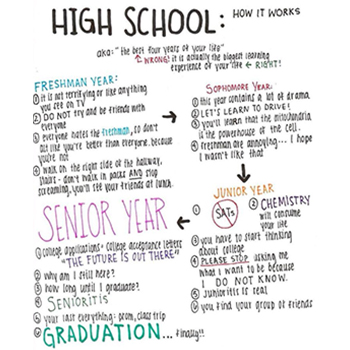 HIGH SCHOOL: HOW IT WORKS
aka: "the best four years of your life"
↑ WRONG! it is actually the biggest learning
experience of your life ← RIGHT!
FRESHMAN YEAR:
① it is not terrifying or like anything
you see on TV
② DO NOT try and be friends with
everyone
③ everyone hates the freshman, so don't
act like you're better than everyone. because
you're not
④ walk on the right side of the hallway.
also - don't walk in packs AND stop
screaming, you'll see your friends at lunch.
SOPHOMORE YEAR:
① this year contains a lot of drama
② LET'S LEARN TO DRIVE!
③ you'll learn that the mitochondria
is the powerhouse of the cell.
④ freshman are annoying... I hope
I wasn't like that
JUNIOR YEAR
① SATs
② CHEMISTRY
will consume
your life
③ you have to start thinking
about college
④ PLEASE STOP asking me
what I want to be because
I DO NOT KNOW.
⑤ junioritis is real
⑥ you find your group of friends
SENIOR YEAR
① college applications + college acceptance letters
"THE FUTURE IS OUT THERE"
② why am I still here?
③ how long until I graduate?
④ SENIORITIS
⑤ your last everything: prom, class trip
⑥ GRADUATION... finally!!